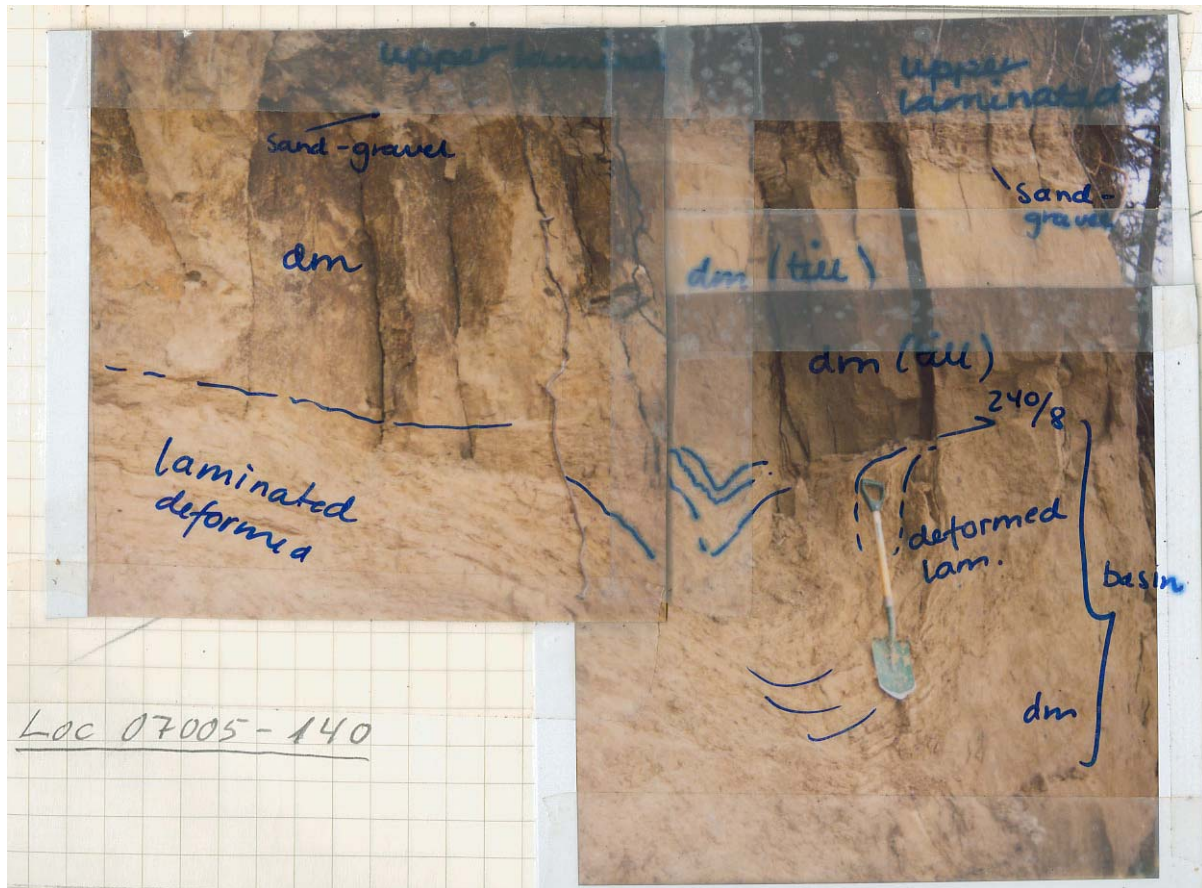 upper laminat.
upper
laminated
sand-gravel
sand-
gravel
dm
dm (till)
dm (till)
240/8
laminated
deformed
deformed
lam.
basin
dm
Loc 07005-140